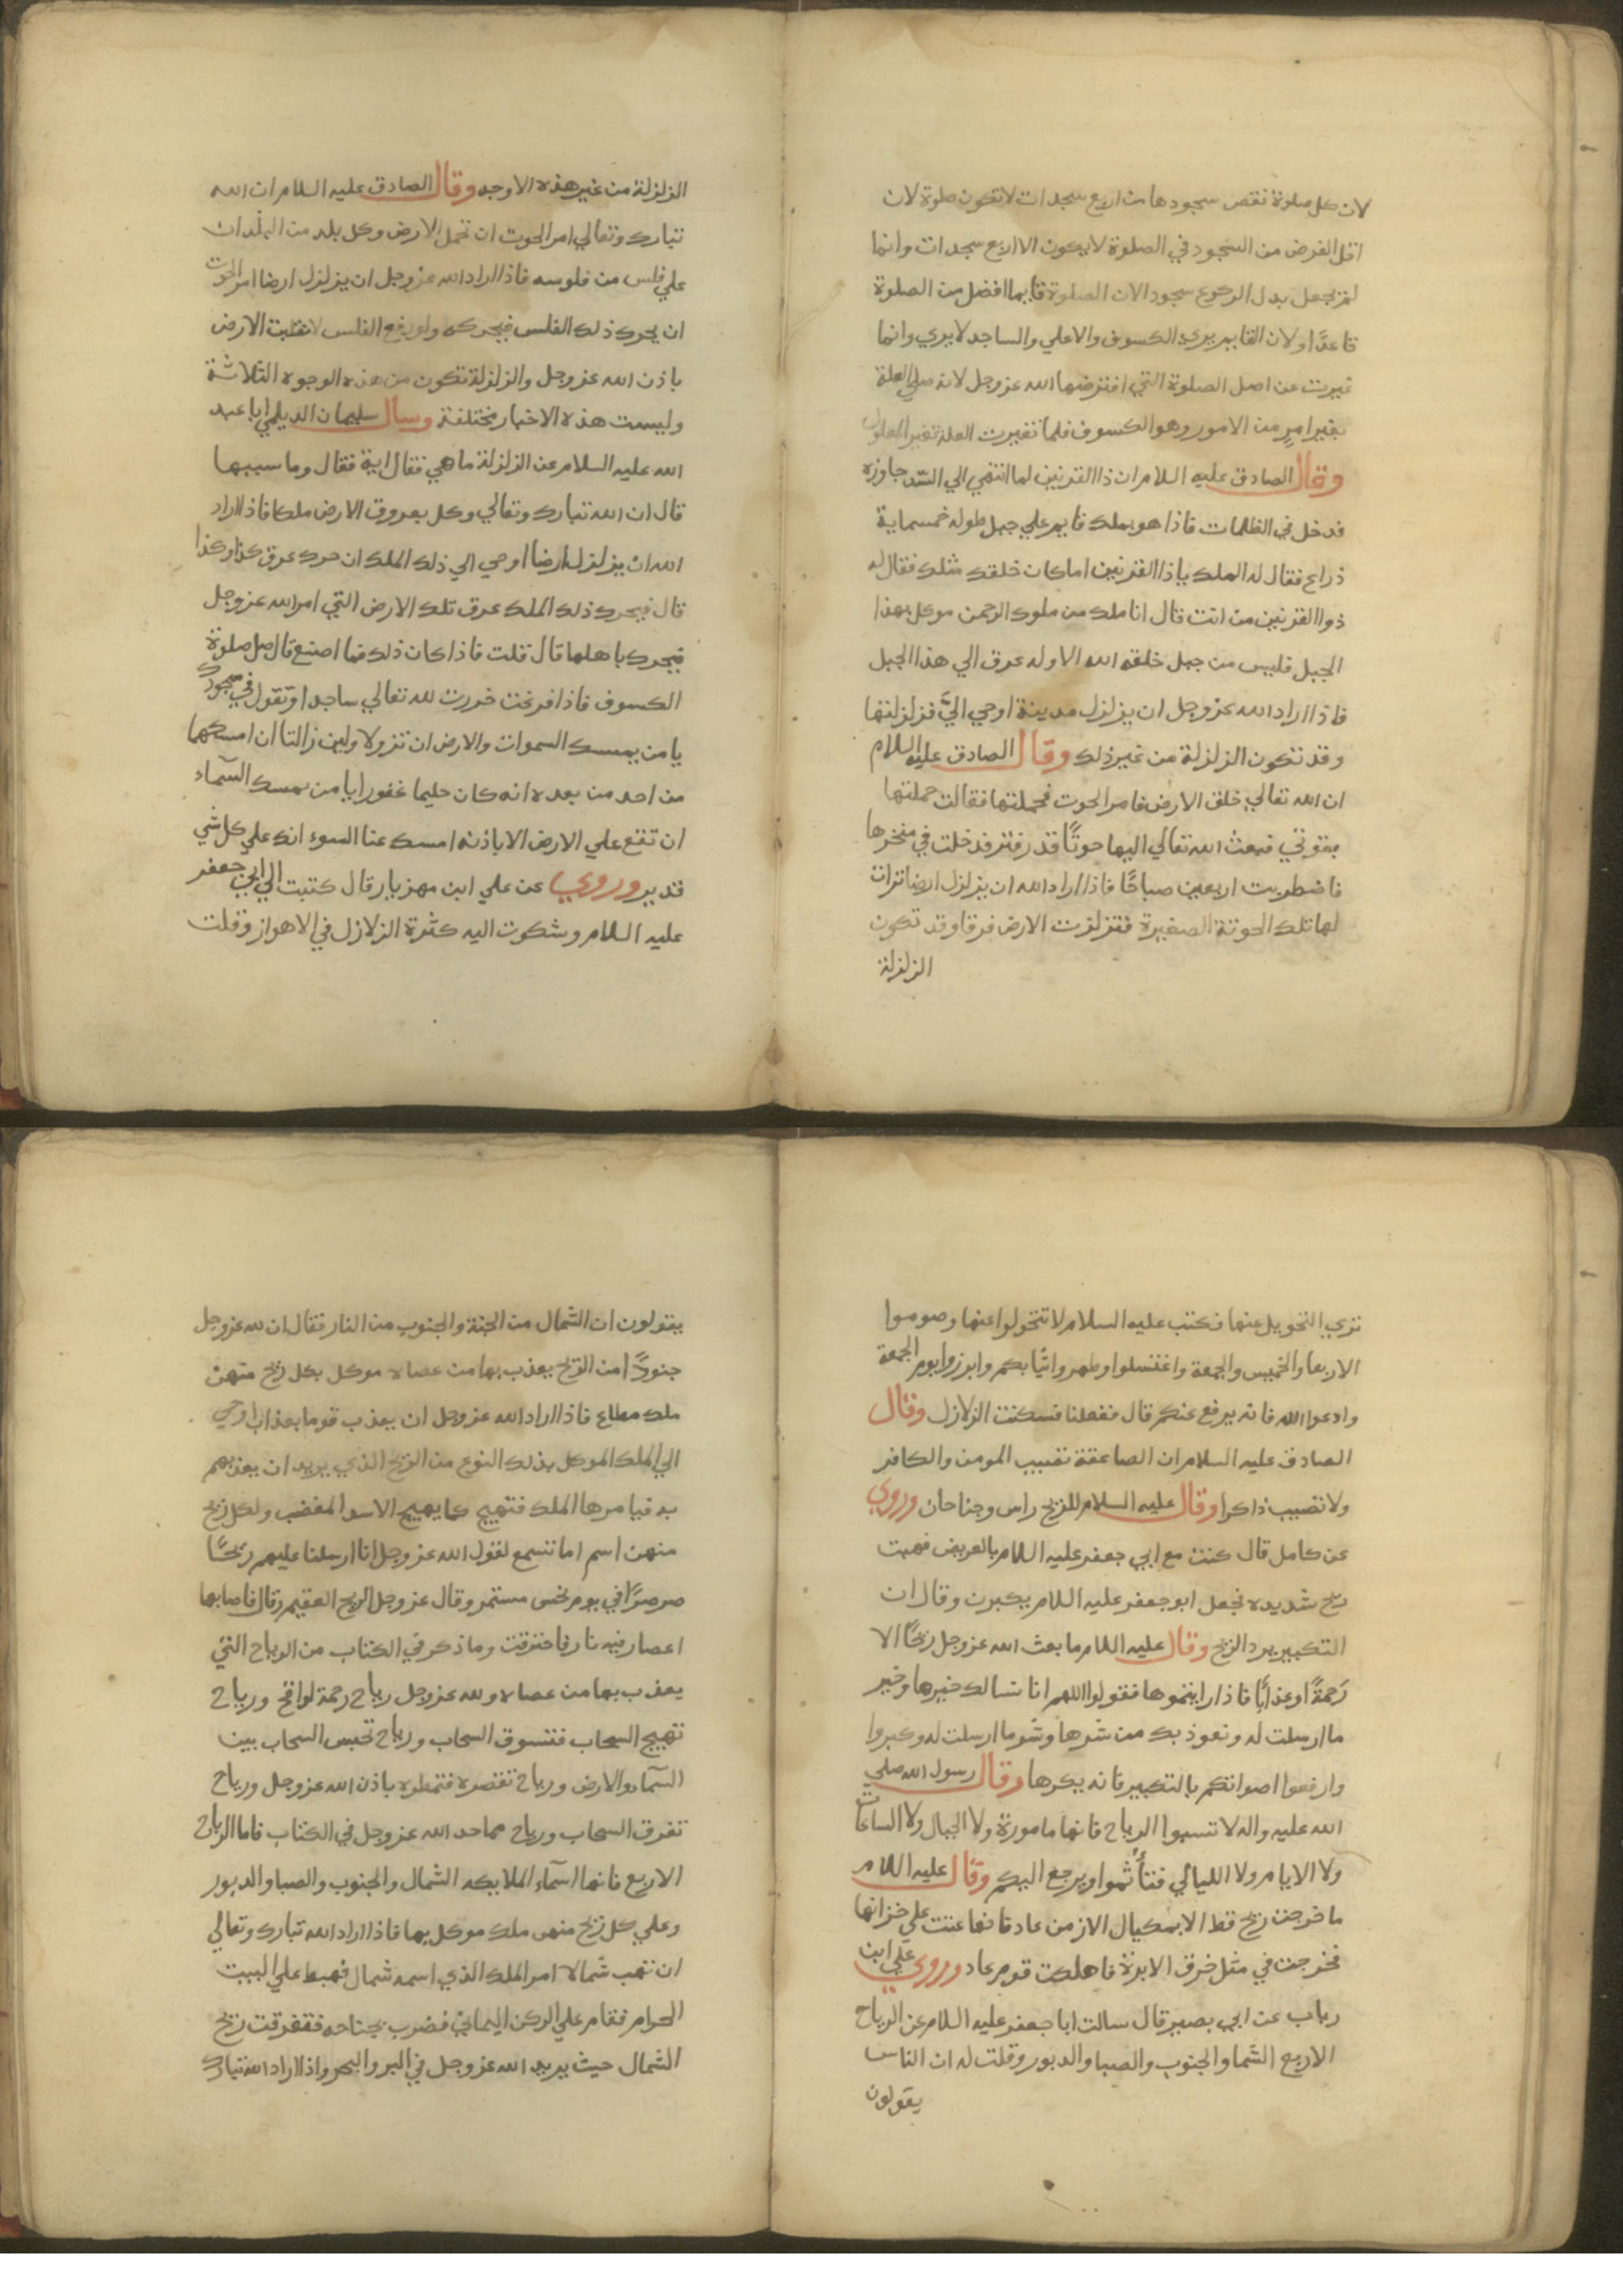 لان كل صلوة نقص سجودها من اربع سجدات لا تكون صلوة لان
اقل الفرض من السجود في الصلوة لا يكون الا اربع سجدات وانما
لم يجعل بدل الركوع سجود الان الصلوة قايما افضل من الصلوة
قاعدًا ولان القايم يري الكسوف والاعلي والساجد لا يري وانما
غيرت عن اصل الصلوة التي افترضها الله عز وجل لانه صلي لعلة
تغير امرٍ من الامور وهو الكسوف فلما تغيرت العلة تغير المعلول
وقال الصادق عليه السلام ان ذا القرنين لما انتهي الي السّد جاوزه
فدخل في الظلمات فاذا هو بملك قايم علي جبل طوله خمسماية
ذراع فقال له الملك يا ذا القرنين اما كان خلفك مثلك فقال له
ذوا القرنين من انت قال انا ملك من ملوك الرحمن موكل بهذا
الجبل فليس من جبل خلقه الله الا وله عرق الي هذا الجبل
فاذا اراد الله عز وجل ان يزلزل مدينة اوحي اليَّ فزلزلتها
وقد تكون الزلزلة من غير ذلك وقال الصادق عليه السلام
ان الله تعالي خلق الارض فامر الحوت فحملتها فقالت حملتها
بقوتي فبعث الله تعالي اليها حوتًا قدر فتر فدخلت في منخرها
فاضطربت اربعين صباحًا فاذا اراد الله ان يزلزل ارضا تراءت
لها تلك الحوتة الصغيرة فتزلزت الارض فرقا وقد تكون
الزلزلة
الزلزلة من غير هذه الاوجه وقال الصادق عليه السلام ان الله
تبارك وتعالي امر الحوت ان تحمل الارض وكل بلد من البلدان
علي فلس من فلوسه فاذا اراد الله عز وجل ان يزلزل ارضا امر الحوت
ان يحرك ذلك الفلس فيحركه ولو رفع الفلس لانقلبت الارض
باذن الله عز وجل والزلزلة تكون من هذه الوجوه الثلاثة
وليست هذه الاخبار مختلفة وسأل سليمان الديلمي ابا عبد
الله عليه السلام عن الزلزلة ما هي فقال اية فقال وما سببها
قال ان الله تبارك وتعالي وكل بعروق الارض ملكا فاذا اراد
الله ان يزلزل ارضا اوحي الي ذلك الملك ان حرك عرق كذا وكذا
قال فيحرك ذلك الملك عرق تلك الارض التي امر الله عز وجل
فيحرك باهلها قال قلت فاذا كان ذلك فما اصنع قال صل صلوة
الكسوف فاذا فرغت خررت لله تعالي ساجدا وتقول في سجودك
يا من يمسك السموات والارض ان تزولا ولين زالتا ان امسكهما
من احد من بعده انه كان حليما غفورا يا من يمسك السّماء
ان تقع علي الارض الا باذنه امسك عنا السوء انك علي كل شي
قدير وروي عن علي ابن مهزيار قال كتبت الي ابي جعفر
عليه السلام وشكوت اليه كثرة الزلازل في الاهواز وقلت
تري التحويل عنها فكتب عليه السلام لا تتحولوا عنها وصوموا
الاربعا والخميس والجمعة واغتسلوا وطهروا ثيابكم وابرزوا يوم الجمعة
وادعوا الله فانه يرفع عنكم قال ففعلنا فسكنت الزلازل وقال
الصادق عليه السلام ان الصاعقة تصيب المومن والكافر
ولا تصيب ذاكرا وقال عليه السلام للريح راس وجناحان وروي
عن كامل قال كنت مع ابي جعفر عليه السلام بالعريض فهبت
ريح شديده فجعل ابو جعفر عليه السلام يكبرن وقال ان
التكبير يرد الريح وقال عليه السلام ما بعث الله عز وجل ريحًا الا
رَحمةً او عذابًا فاذا رايتموها فقولوا اللهم انا نسالك خيرها وخير
ما ارسلت له ونعوذ بك من شرها وشر ما ارسلت له وكبروا
وارفعوا اصواتكم بالتكبير فانه يكرها وقال رسول الله صلي
الله عليه واله لا تسبوا الرياح فانها مامورة ولا الجبال ولا الساعات
ولا الايام ولا الليالي فتأثموا ويرجع اليكم وقال عليه السلام
ما خرجت ريح قط الا بمكيال الا زمن عاد فانها عتت علي خزانها
فخرجت في مثل خرق الابرة فاهلكت قوم عاد وروي علي ابن
رياب عن ابي بصير قال سالت ابا جعفر عليه السلام عن الرياح
الاربع الشما والجنوب والصبا والدبور وقلت له ان الناس
يقولون
يقولون ان الشمال من الجنة والجنوب من النار فقال ان لله عز وجل
جنودًا من الريح يعذب بها من عصاه موكل بكل ريح منهن
ملك مطاع فاذا اراد الله عز وجل ان يعذب قوما بعذاب اوحي
الي الملك الموكل بذلك النوع من الريح الذي يريد ان يعذبهم
به فيامرها الملك فتهيج كما يهيج الاسد المغضب ولكل ريح
منهن اسم اما تسمع لقول الله عز وجل انا ارسلنا عليهم ريحًا
صرصرًا في يوم نحس مستمر وقال عز وجل الريح العقيم وقال فاصابها
اعصار فيه نار فاحترقت وما ذكر في الكتاب من الرياح التي
يعذب بها من عصاه ولله عز وجل رياح رحمة لواقح ورياح
تهيج السحاب فتسوق السحاب ورياح تحبس السحاب بين
السّماء والارض ورياح تعصره فتمطره باذن الله عز وجل ورياح
تفرق السحاب ورياح مما حد الله عز وجل في الكتاب فاما الرياح
الاربع فانها اسمآء الملايكه الشمال والجنوب والصبا والدبور
وعلي كل ريح منهن ملك موكل بها فاذا اراد الله تبارك وتعالي
ان تهب شمالا امر الملك الذي اسمه شمال فهبط علي البيت
الحرام فقام علي الركن اليماني فضرب بجناحه فتفرقت ريح
الشمال حيث يريد الله عز وجل في البر والبحر واذا اراد الله تبارك